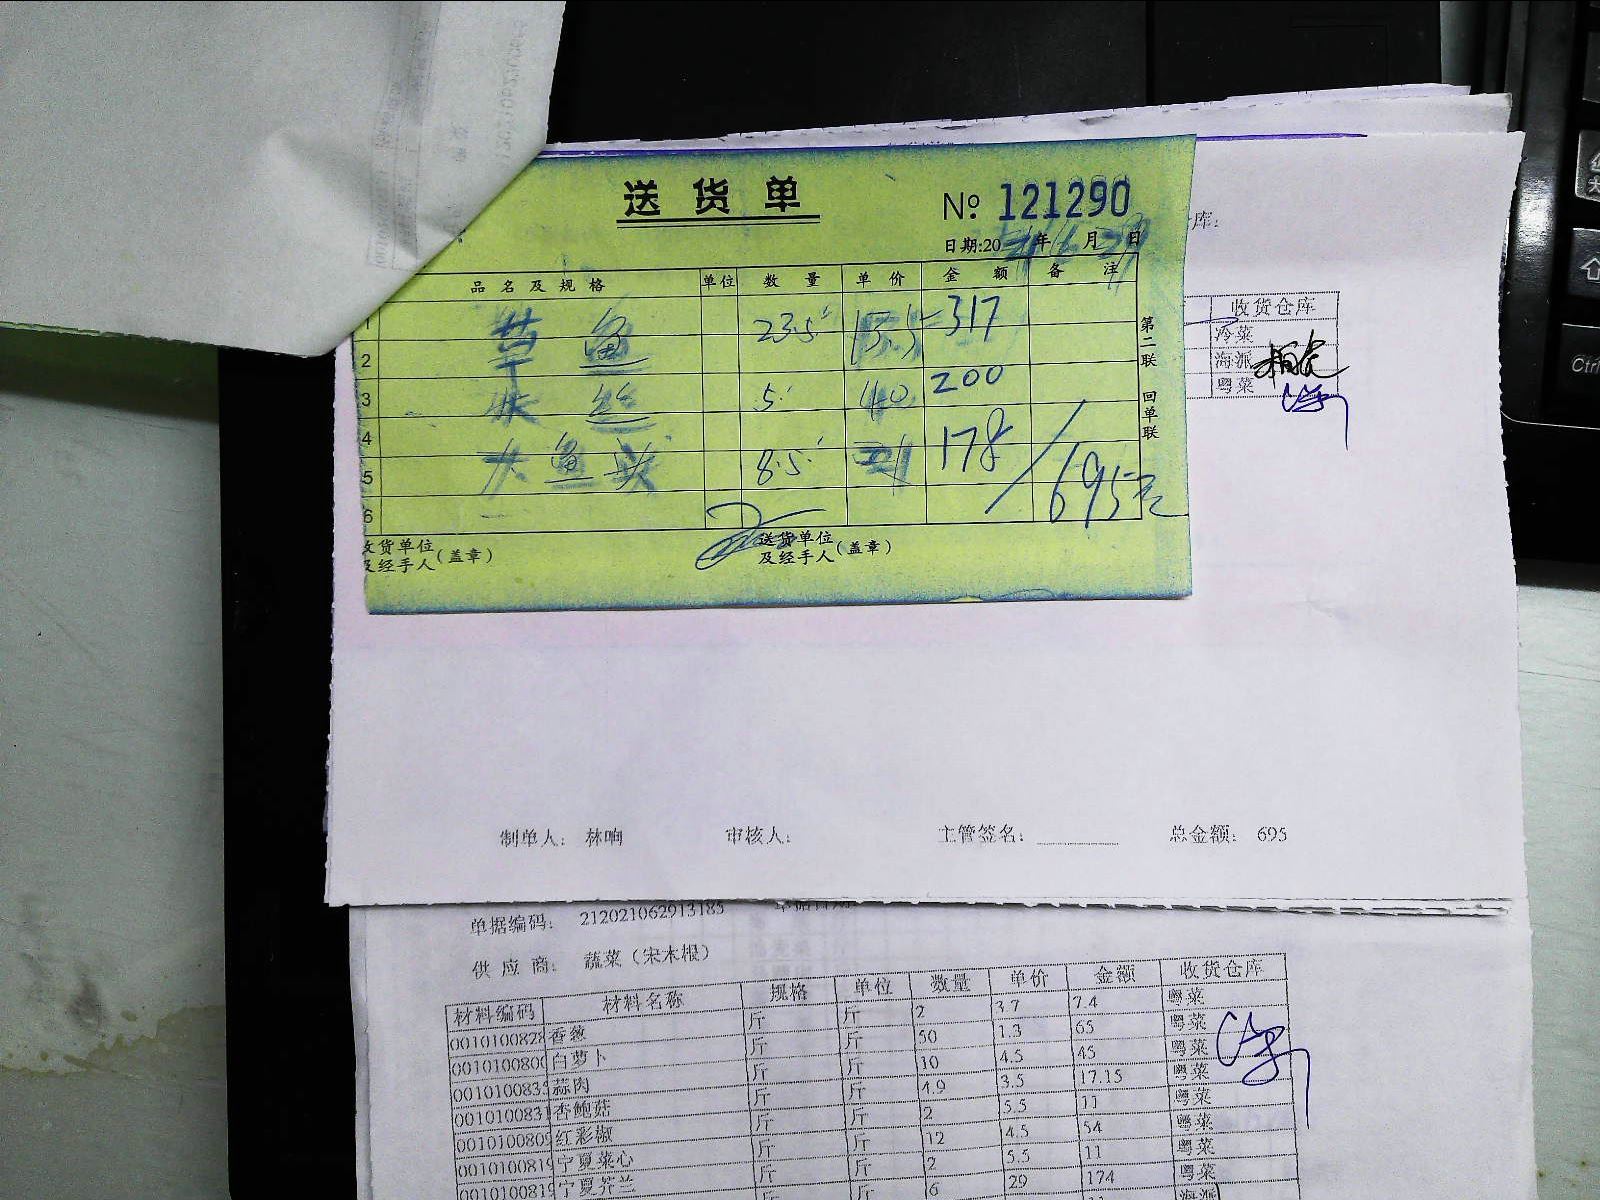 送货单
№ 121290
日期:20 年 月 日
品名及规格 单位 数量 单价 金额 备注
1 草鱼 23.5 13.5 317
2
3 丝 5 40 200
4
5 大鱼头 8.5 21 178
6 695元
第二联 回单联
收货单位及经手人(盖章)
送货单位及经手人(盖章)
库:
收货仓库
冷菜
海派
粤菜
制单人: 林响 审核人: 主管签名: 总金额: 695
单据编码: 212021062913185 单据日期
供应商: 蔬菜（宋木根）
材料编码 材料名称 规格 单位 数量 单价 金额 收货仓库
0010100828 香葱 斤 斤 2 3.7 7.4 粤菜
001010080 白萝卜 斤 斤 50 1.3 65 粤菜
001010083 蒜肉 斤 斤 10 4.5 45 粤菜
001010083 杏鲍菇 斤 斤 4.9 3.5 17.15 粤菜
001010080 红彩椒 斤 斤 2 5.5 11 粤菜
001010081 宁夏菜心 斤 斤 12 4.5 54 粤菜
001010081 宁夏芥兰 斤 斤 2 5.5 11 粤菜
斤 斤 6 29 174 粤菜
海派